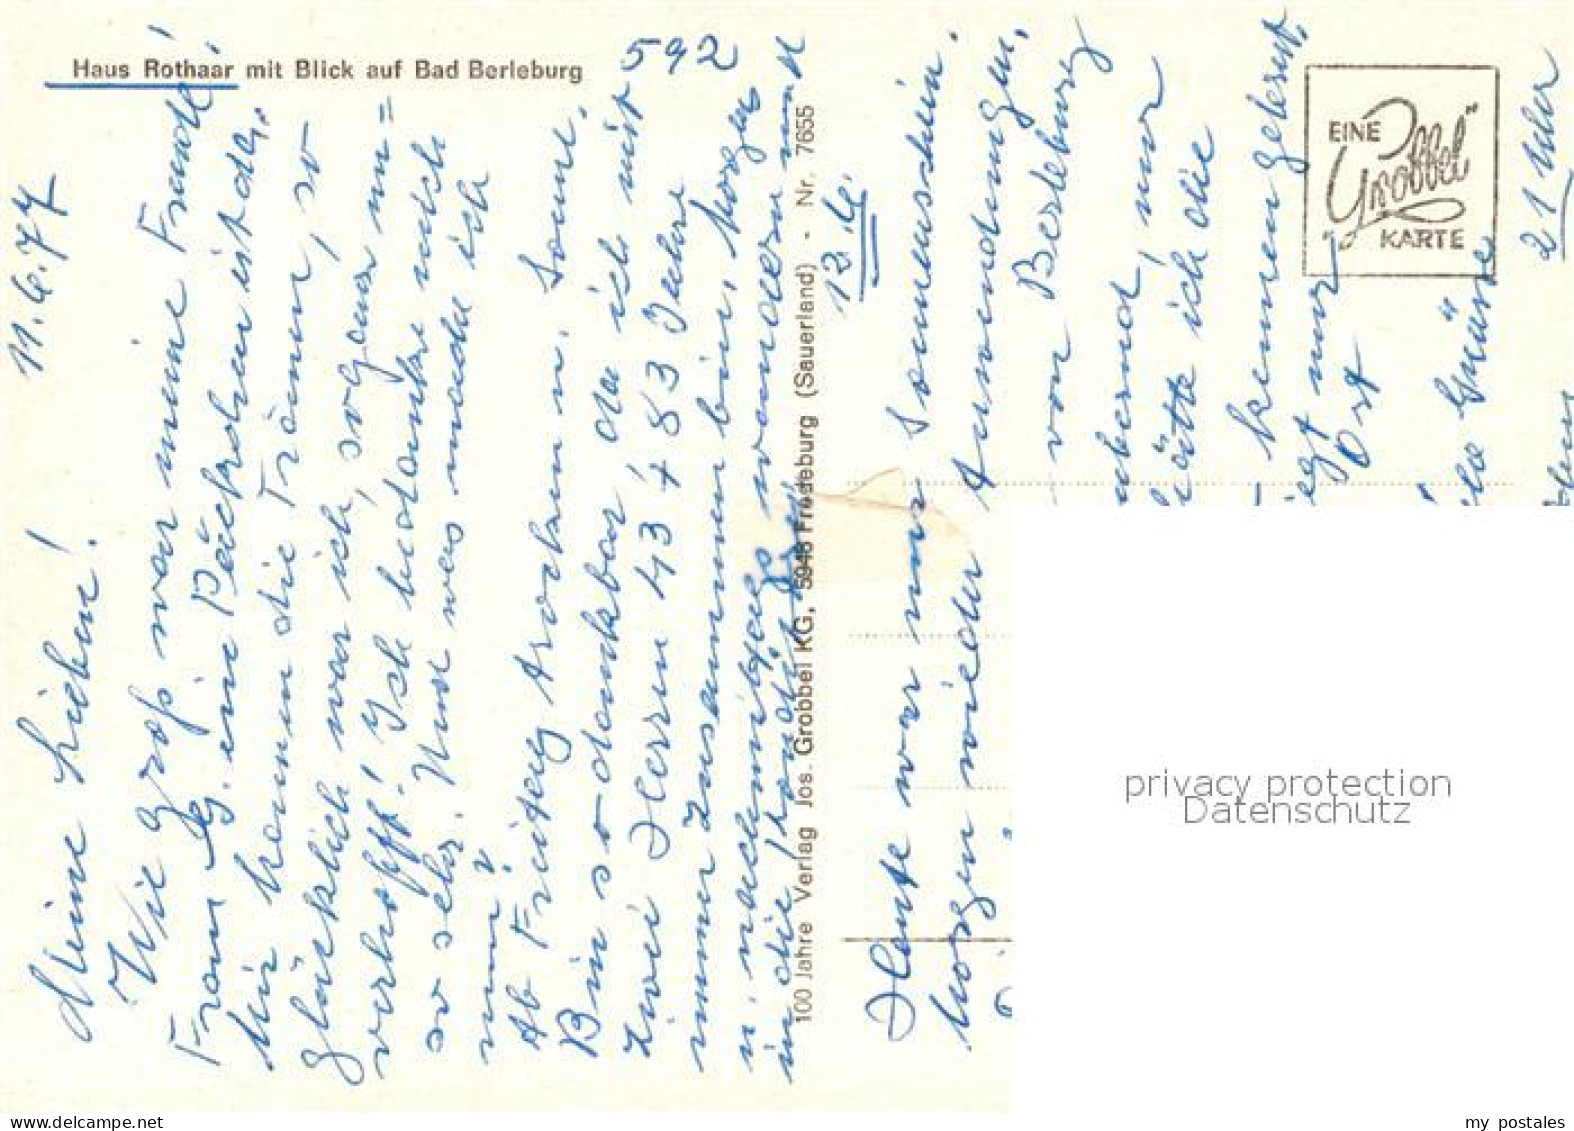 Haus Rothaar mit Blick auf Bad Berleburg
592
11.6.77
Meine Lieben!
Wie groß war meine Freude!
Frau G. ein Päckchen ist da.
Mir kamen die Tränen, so
glücklich war ich, so genau un=
verhofft! Ich bedanke mich
so sehr. Nur was mache ich
nun?
Ab Freitag trocken u. Sonne.
Bin so dankbar da ich mit
zwei Herrn 73 + 83 Jahre
immer zusammen bin, Morgens
u. nachmittags wandern und
in die
100 Jahre Verlag Jos. Grobbel KG, 5948 Fredeburg (Sauerland) - Nr. 7655
12.6.
Heute war nur Sonnenschein.
Morgen wieder Anwendungen,
von Berleburg
nur
hätte ich die
kennengelernt,
nur
Ort
Grüße
21 Uhr
EINE
"Grobbel"
KARTE
privacy protection
Datenschutz
www.delcampe.net
my_postales